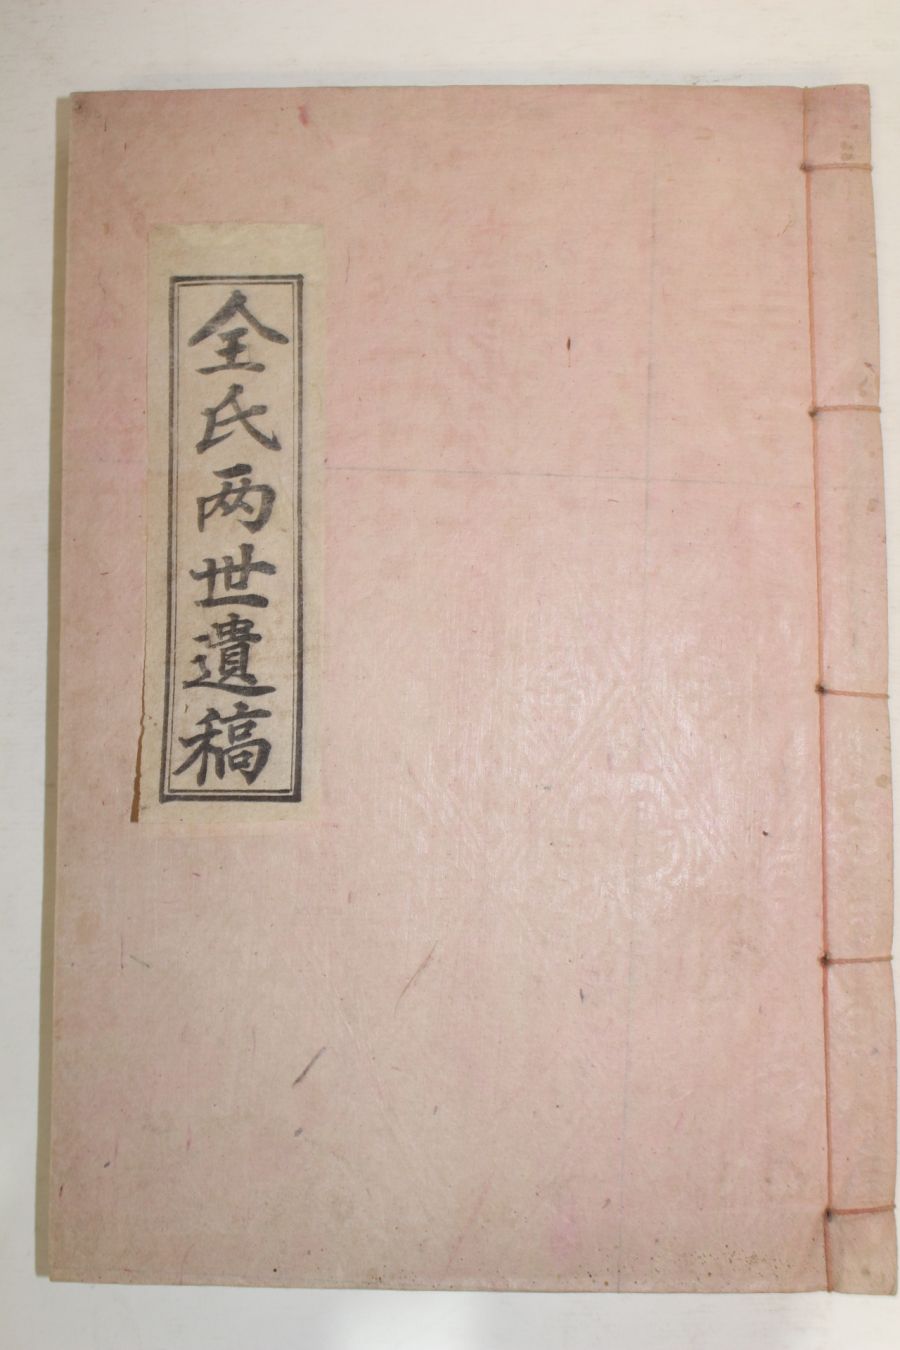 全氏兩世遺稿